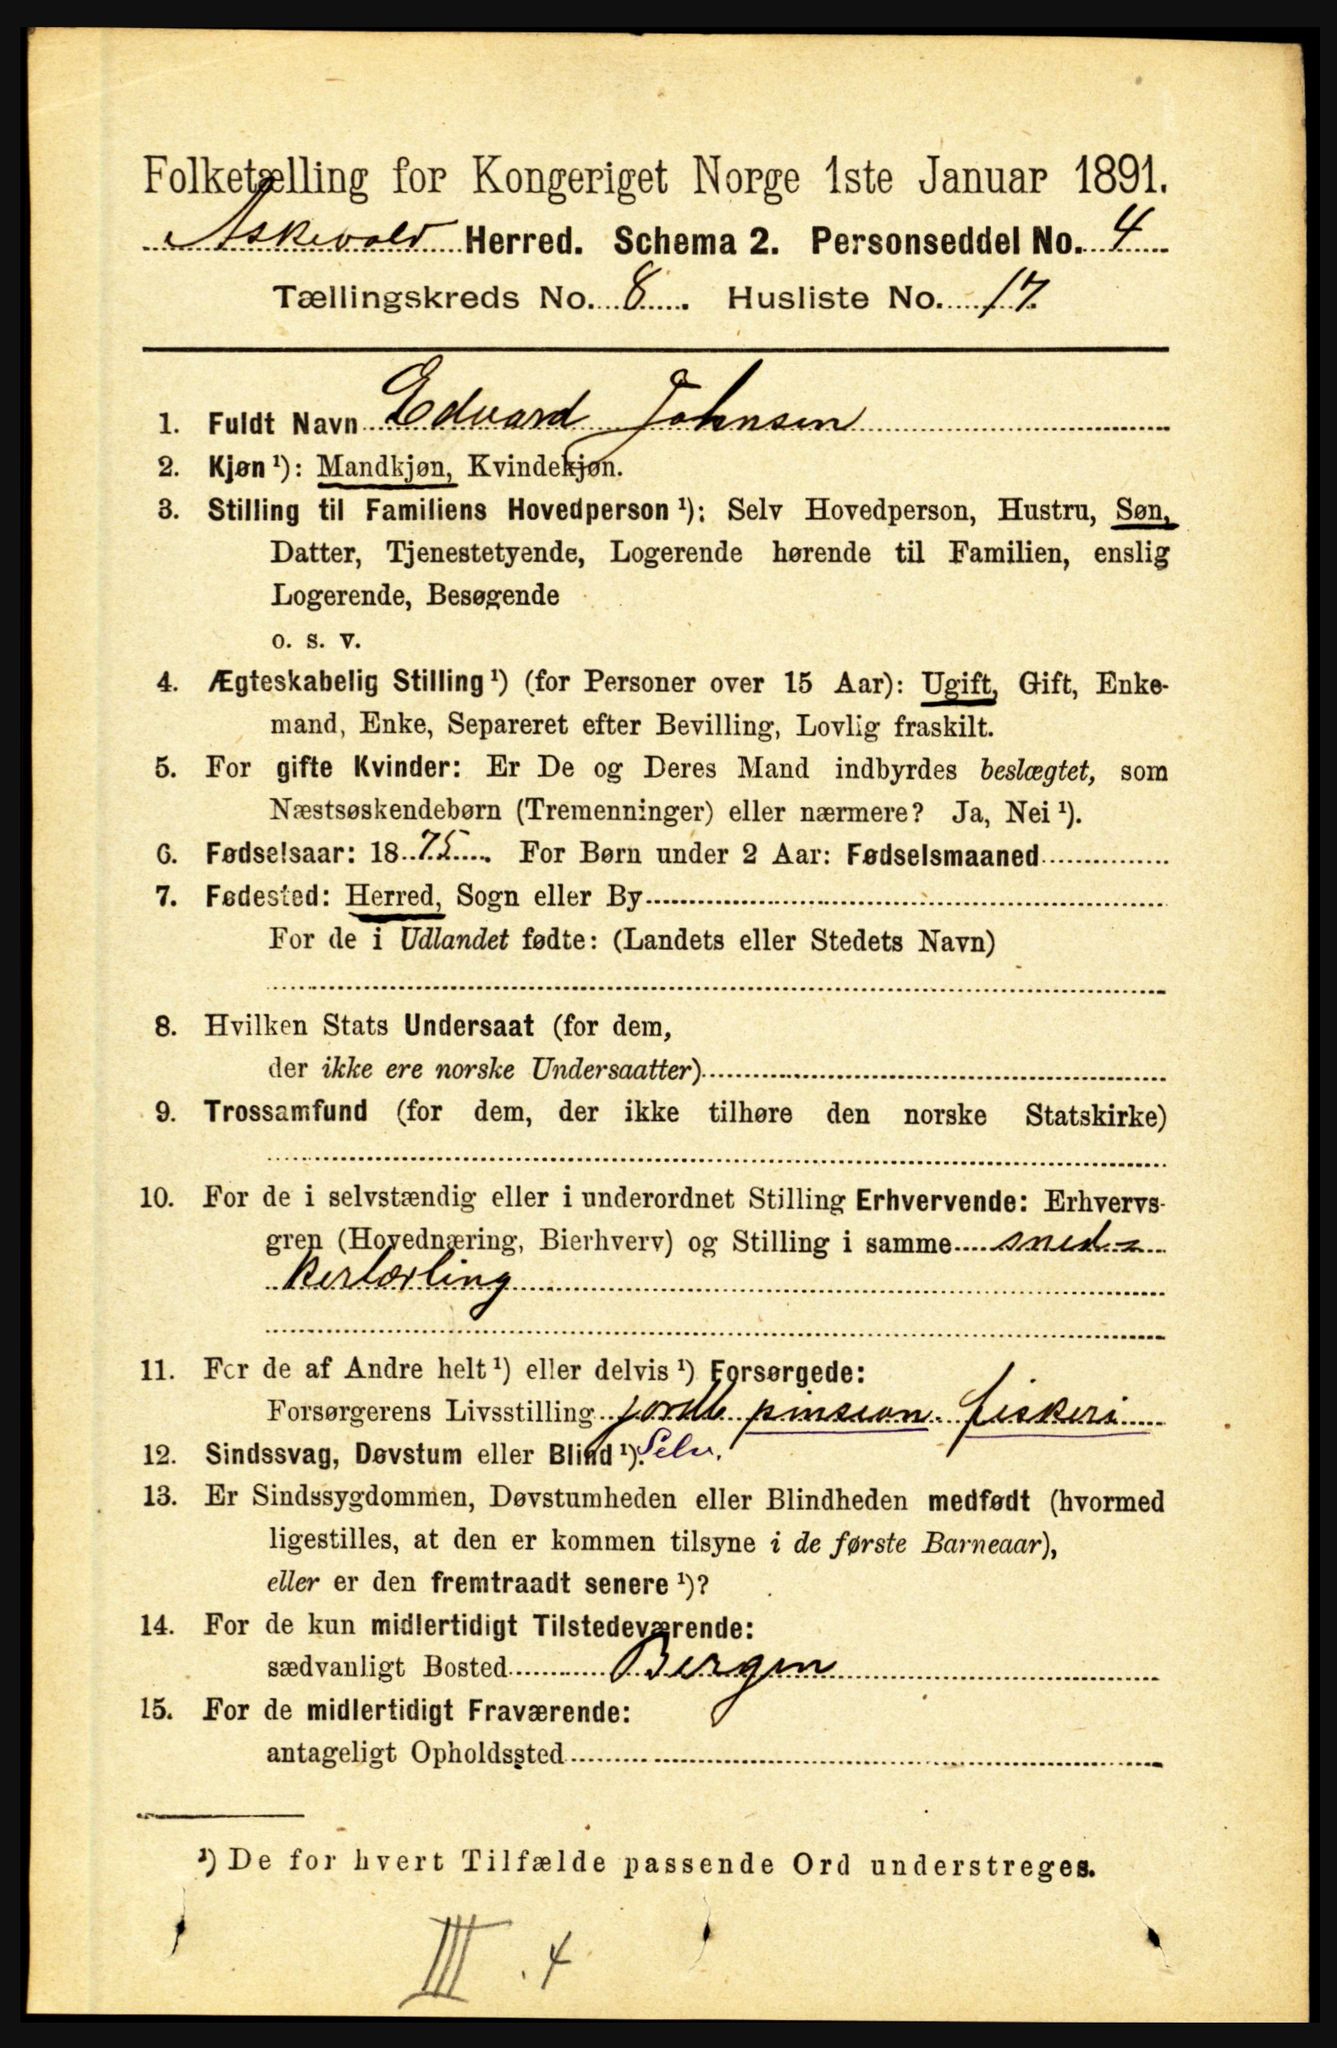 Folketælling for Kongeriget Norge 1ste Januar 1891.
Askevold Herred. Schema 2. Personseddel No. 4
Tællingskreds No. 8. Husliste No. 17.
1. Fuldt Navn Edvard Johnsen
2. Kjøn ¹): Mandkjøn, Kvindekjøn.
3. Stilling til Familiens Hovedperson ¹): Selv Hovedperson, Hustru, Søn,
Datter, Tjenestetyende, Logerende hørende til Familien, enslig
Logerende, Besøgende
o. s. v.
4. Ægteskabelig Stilling ¹) (for Personer over 15 Aar): Ugift, Gift, Enke-
mand, Enke, Separeret efter Bevilling, Lovlig fraskilt.
5. For gifte Kvinder: Er De og Deres Mand indbyrdes beslægtet, som
Næstsøskendebørn (Tremenninger) eller nærmere? Ja, Nei ¹).
6. Fødselsaar: 1875. For Børn under 2 Aar: Fødselsmaaned
7. Fødested: Herred, Sogn eller By
For de i Udlandet fødte: (Landets eller Stedets Navn)
8. Hvilken Stats Undersaat (for dem,
der ikke ere norske Undersaatter)
9. Trossamfund (for dem, der ikke tilhøre den norske Statskirke)
10. For de i selvstændig eller i underordnet Stilling Erhvervende: Erhvervs-
gren (Hovednæring, Bierhverv) og Stilling i samme sned-
kerlærling
11. For de af Andre helt ¹) eller delvis ¹) Forsørgede:
Forsørgerens Livsstilling jordb pinsion. fiskeri
12. Sindssvag, Døvstum eller Blind ¹). Selv.
13. Er Sindssygdommen, Døvstumheden eller Blindheden medfødt (hvormed
ligestilles, at den er kommen tilsyne i de første Barneaar),
eller er den fremtraadt senere ¹)?
14. For de kun midlertidigt Tilstedeværende:
sædvanligt Bosted Bergen
15. For de midlertidigt Fraværende:
antageligt Opholdssted
¹) De for hvert Tilfælde passende Ord understreges.
III . 4